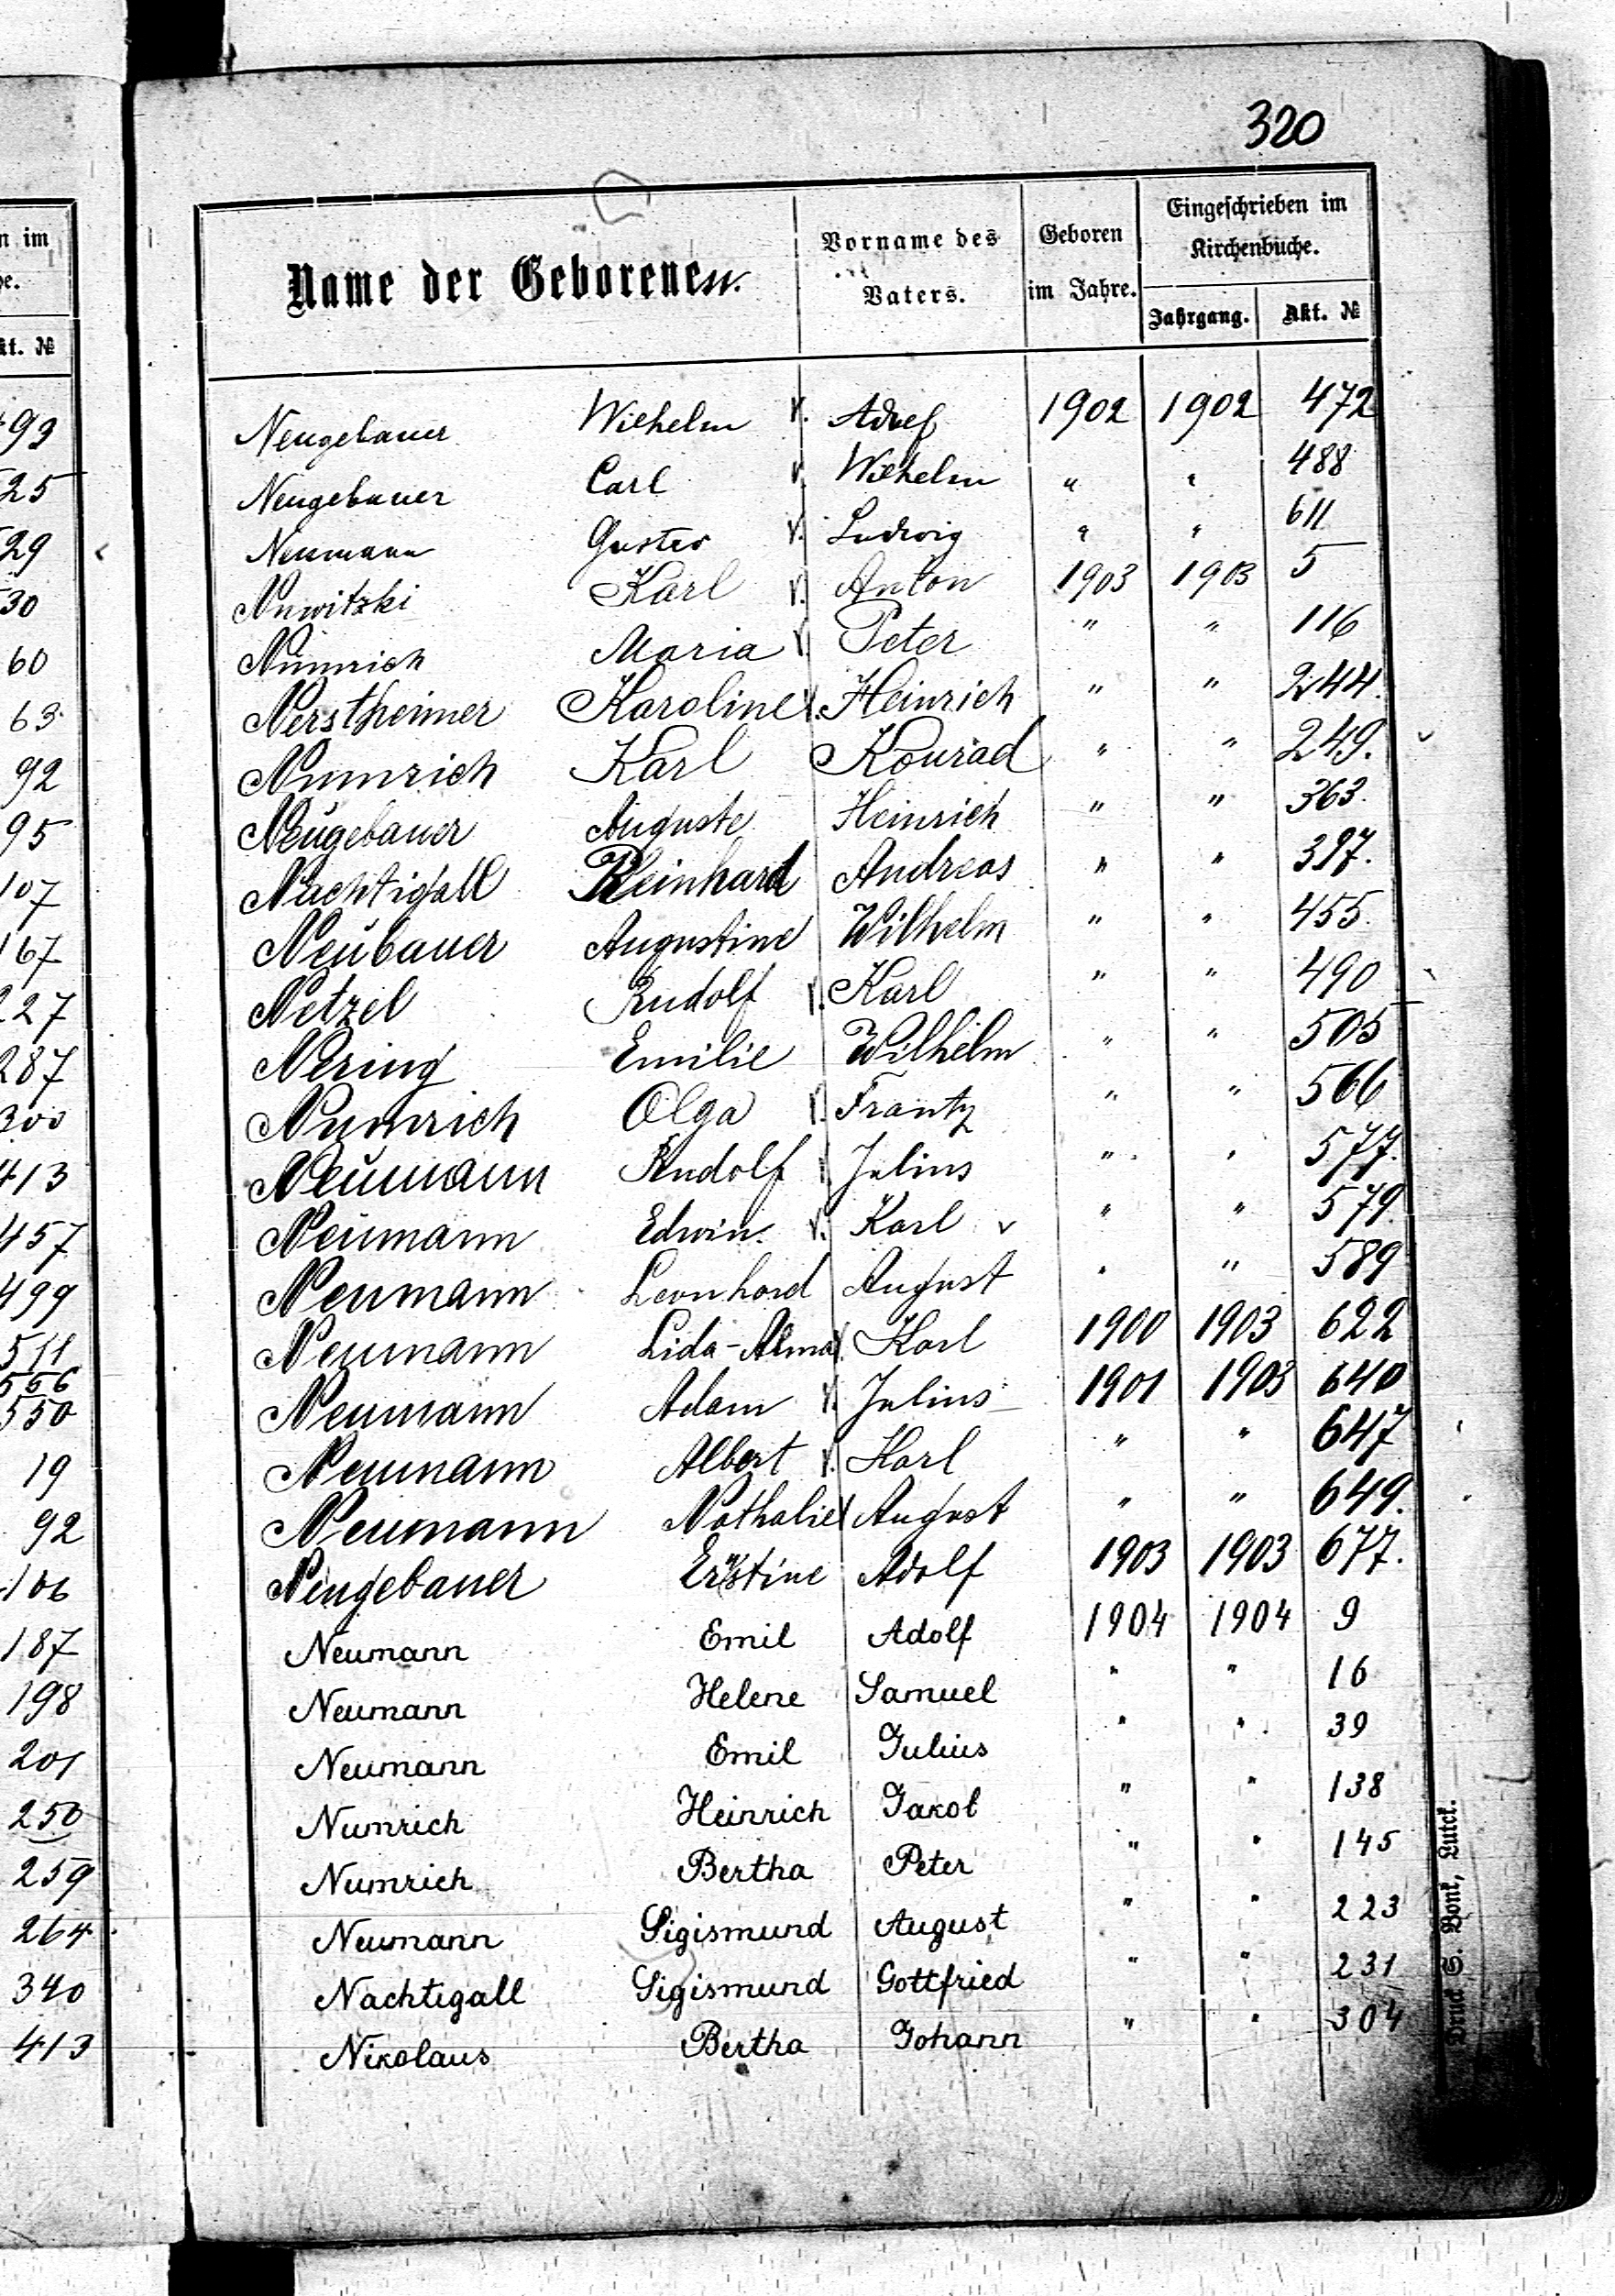 320
Name der Geborenen. Vorname des Vaters. Geboren im Jahre. Eingeschrieben im Kirchenbuche.
Jahrgang. Akt. №
Neugebauer Wilhelm v. Adolf 1902 1902 472
Neugebauer Carl v. Wilhelm " " 488
Neumann Gustav v. Ludwig " " 611
Nuwitzki Karl v. Anton 1903 1903 5
Numrich Maria v. Peter " " 116
Nerstheimer Karoline v. Heinrich " " 244.
Numrich Karl Konrad " " 249.
Neugebauer Auguste Heinrich " " 363.
Nachtigall Reinhard Andreas " " 397.
Neubauer Augustine Wilhelm " " 455.
Netzel Rudolf v. Karl " " 490
Nering Emilie Wilhelm " " 505
Numrich Olga v. Frantz " " 566
Neumann Rudolf v. Julius " " 577.
Neumann Edwin. v. Karl v " " 579.
Neumann Leonhard August " " 589
Neumann Lida-Alma v. Karl 1900 1903 622
Neumann Adam v. Julius 1901 1903 640
Neumann Albert v. Karl " " 647
Neumann Nathalie v August " " 649.
Neugebauer Ernstine Adolf 1903 1903 677.
Neumann Emil Adolf 1904 1904 9
Neumann Helene Samuel " " 16
Neumann Emil Julius " " 39
Numrich Heinrich Jakob " " 138
Numrich Bertha Peter " " 145
Neumann Sigismund August " " 223
Nachtigall Sigismund Gottfried " " 231
Nikolaus Bertha Johann " " 304
Druck S. Bonk, Lutck.
n im
e.
kt. №
93
25
29
30
60
63
92
95
107
167
227
287
300
413
457
499
511
556
550
19
92
106
187
198
201
250
259
264
340
413